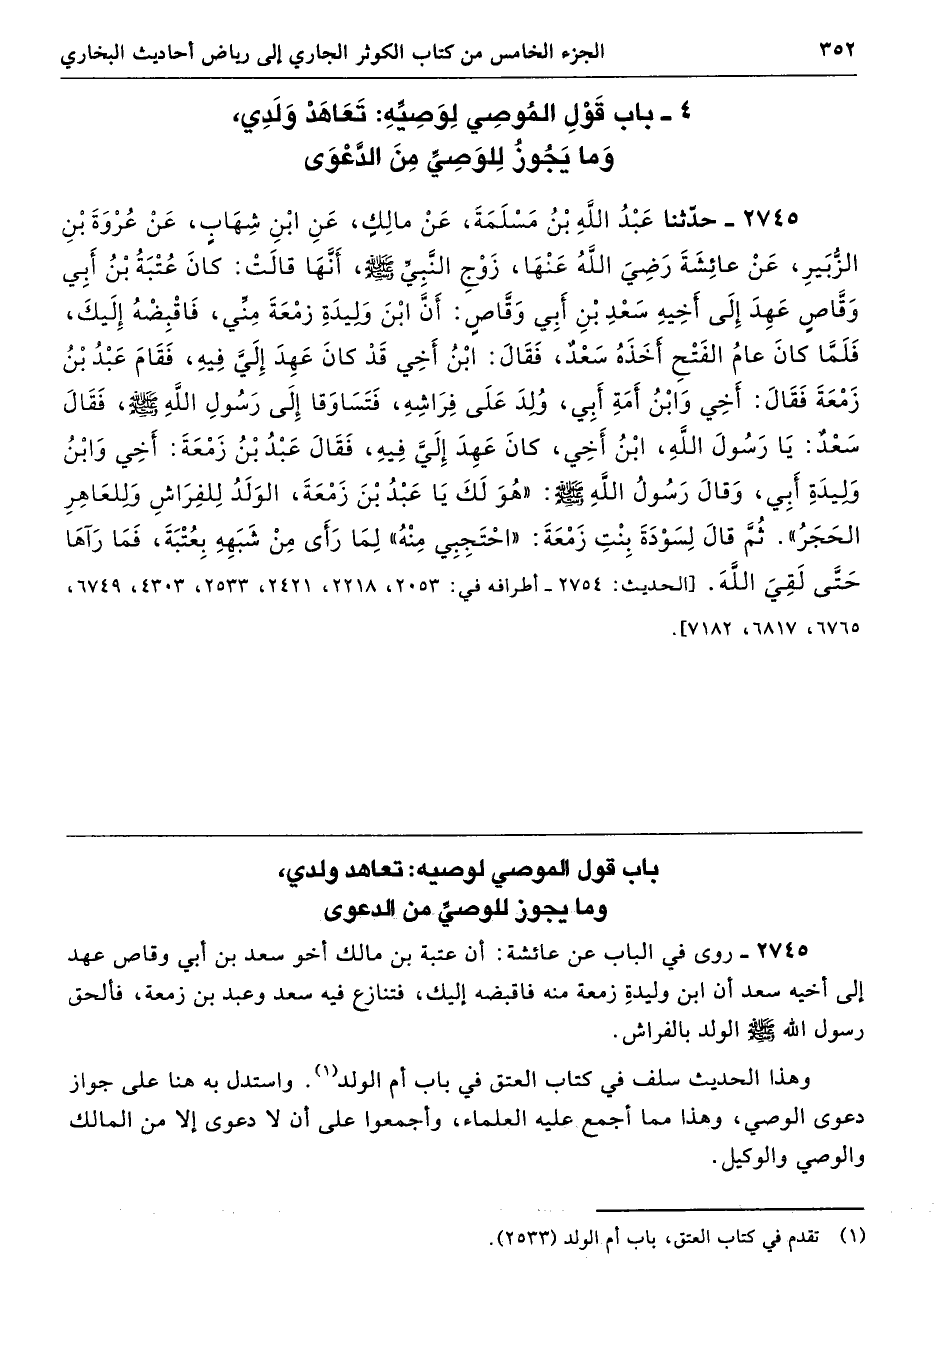 ٣٥٢ الجزء الخامس من كتاب الكوثر الجاري إلى رياض أحاديث البخاري
٤ ـ باب قَوْلِ المُوصِي لِوَصِيِّهِ: تَعَاهَدْ وَلَدِي،
وَما يَجُوزُ لِلوَصِيِّ مِنَ الدَّعْوَى
٢٧٤٥ ـ حدّثنا عَبْدُ اللَّهِ بْنُ مَسْلَمَةَ، عَنْ مالِكٍ، عَنِ ابْنِ شِهَابٍ، عَنْ عُرْوَةَ بْنِ
الزُّبَيرِ، عَنْ عائِشَةَ رَضِيَ اللَّهُ عَنْهَا، زَوْجِ النَّبِيِّ ﷺ، أَنَّهَا قالَتْ: كانَ عُتْبَةُ بْنُ أَبِي
وَقَّاصٍ عَهِدَ إِلَى أَخِيهِ سَعْدِ بْنِ أَبِي وَقَّاصٍ: أَنَّ ابْنَ وَلِيدَةِ زمْعَةَ مِنِّي، فَاقْبِضْهُ إِلَيكَ،
فَلَمَّا كانَ عامُ الفَتْحِ أَخَذَهُ سَعْدٌ، فَقَالَ: ابْنُ أَخِي قَدْ كانَ عَهِدَ إِلَيَّ فِيهِ، فَقَامَ عَبْدُ بْنُ
زَمْعَةَ فَقَالَ: أَخِي وَابْنُ أَمَةِ أَبِي، وُلِدَ عَلَى فِرَاشِهِ، فَتَسَاوَقا إِلَى رَسُولِ اللَّهِ ﷺ، فَقَالَ
سَعْدٌ: يَا رَسُولَ اللَّهِ، ابْنُ أَخِي، كانَ عَهِدَ إِلَيَّ فِيهِ، فَقَالَ عَبْدُ بْنُ زَمْعَةَ: أَخِي وَابْنُ
وَلِيدَةِ أَبِي، وَقالَ رَسُولُ اللَّهِ ﷺ: «هُوَ لَكَ يَا عَبْدُ بْنَ زَمْعَةَ، الوَلَدُ لِلفِرَاشِ وَلِلعَاهِرِ
الحَجَرُ». ثُمَّ قالَ لِسَوْدَةَ بِنْتِ زَمْعَةَ: «احْتَجِبِي مِنْهُ» لِمَا رَأَى مِنْ شَبَهِهِ بِعُتْبَةَ، فَمَا رَآهَا
حَتَّى لَقِيَ اللَّهَ. [الحديث: ٢٧٥٤ ـ أطرافه في: ٢٠٥٣، ٢٢١٨، ٢٤٢١، ٢٥٣٣، ٤٣٠٣، ٦٧٤٩،
٦٧٦٥، ٦٨١٧، ٧١٨٢].
باب قول الموصي لوصيه: تعاهد ولدي،
وما يجوز للوصيِّ من الدعوى
٢٧٤٥ ـ روى في الباب عن عائشة: أن عتبة بن مالك أخو سعد بن أبي وقاص عهد
إلى أخيه سعد أن ابن وليدةِ زمعة منه فاقبضه إليك، فتنازع فيه سعد وعبد بن زمعة، فألحق
رسول الله ﷺ الولد بالفراش.
وهذا الحديث سلف في كتاب العتق في باب أم الولد(١). واستدل به هنا على جواز
دعوى الوصي، وهذا مما أجمع عليه العلماء، وأجمعوا على أن لا دعوى إلا من المالك
والوصي والوكيل.
(١) تقدم في كتاب العتق، باب أم الولد (٢٥٣٣).